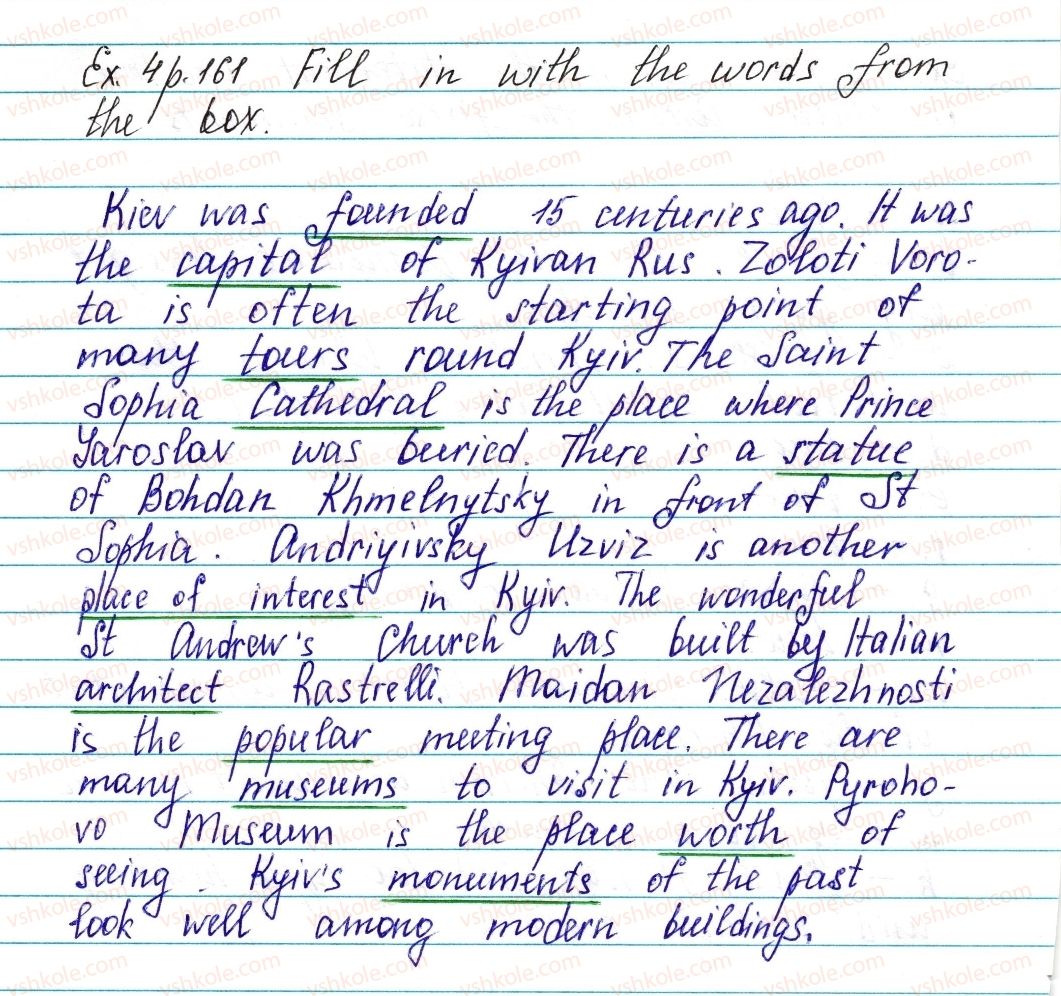 Ex. 4 p. 161 Fill in with the words from
the box.
Kiev was founded 15 centuries ago. It was
the capital of Kyivan Rus. Zoloti Voro-
ta is often the starting point of
many tours round Kyiv. The Saint
Sophia Cathedral is the place where Prince
Yaroslav was buried. There is a statue
of Bohdan Khmelnytsky in front of St
Sophia. Andriyivsky Uzviz is another
place of interest in Kyiv. The wonderful
St Andrew's Church was built by Italian
architect Rastrelli. Maidan Nezalezhnosti
is the popular meeting place. There are
many museums to visit in Kyiv. Pyroho-
vo Museum is the place worth of
seeing. Kyiv's monuments of the past
look well among modern buildings.
vshkole.com